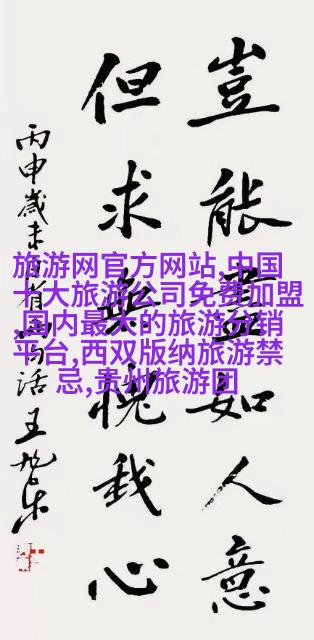 豈能盡如人意
但求無愧我心
丙申歲末
王旭东
旅游网官方网站,中国
十大旅游公司免费加盟
,国内最大的旅游分销
平台,西双版纳旅游禁
忌,贵州旅游团